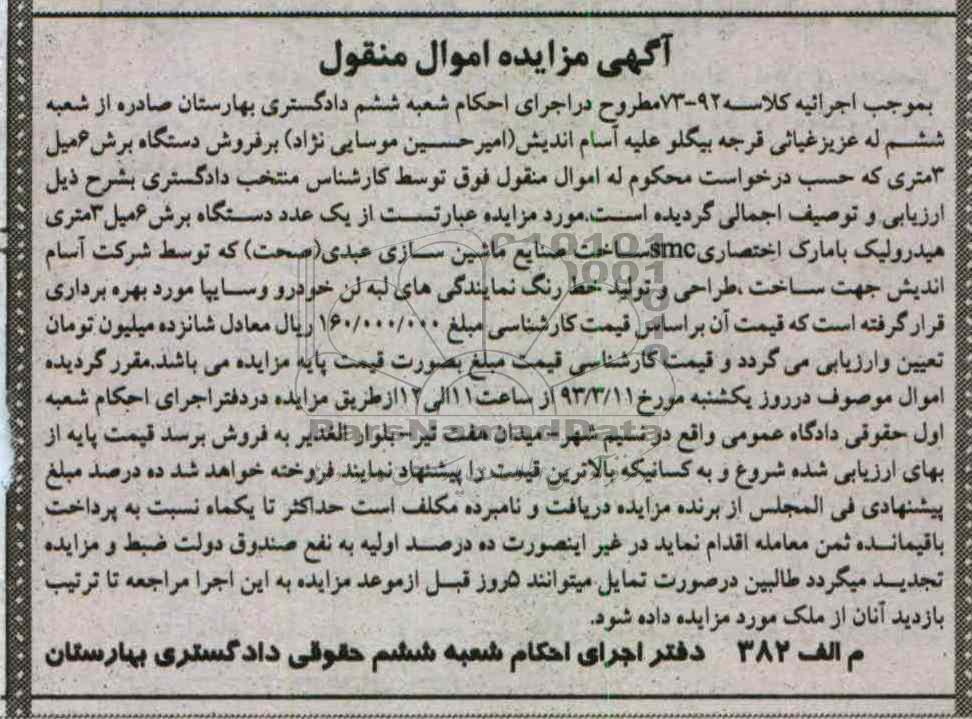 آگهی مزایده اموال منقول
بموجب اجرائیه کلاسه ۹۲-۷۳مطروح دراجرای احکام شعبه ششم دادگستری بهارستان صادره از شعبه
ششم له عزیزغیاثی قرجه بیگلو علیه آسام اندیش(امیرحسین موسایی نژاد) برفروش دستگاه برش۶میل
۳متری که حسب درخواست محکوم له اموال منقول فوق توسط کارشناس منتخب دادگستری بشرح ذیل
ارزیابی و توصیف اجمالی گردیده است.مورد مزایده عبارتست از یک عدد دستگاه برش۶میل۳متری
هیدرولیک بامارک اختصاریsmcساخت صنایع ماشین سازی عبدی(صحت) که توسط شرکت آسام
اندیش جهت ساخت ،طراحی و تولید خط رنگ نمایندگی های لیه لن خودرو وسایپا مورد بهره برداری
قرارگرفته است که قیمت آن براساس قیمت کارشناسی مبلغ ۱۶۰/۰۰۰/۰۰۰ ریال معادل شانزده میلیون تومان
تعیین وارزیابی می گردد و قیمت کارشناسی قیمت مبلغ بصورت قیمت پایه مزایده می باشد.مقرر گردیده
اموال موصوف درروز یکشنبه مورخ۹۳/۳/۱۱ از ساعت۱۱الی۱۲ازطریق مزایده دردفتراجرای احکام شعبه
اول حقوقی دادگاه عمومی واقع در نسیم شهر- میدان هفت تیر- بلوار الغدیر به فروش برسد قیمت پایه از
بهای ارزیابی شده شروع و به کسانیکه بالاترین قیمت را پیشنهاد نمایند فروخته خواهد شد ده درصد مبلغ
پیشنهادی فی المجلس از برنده مزایده دریافت و نامبرده مکلف است حداکثر تا یکماه نسبت به پرداخت
باقیمانده ثمن معامله اقدام نماید در غیر اینصورت ده درصد اولیه به نفع صندوق دولت ضبط و مزایده
تجدید میگردد طالبین درصورت تمایل میتوانند ۵روز قبل ازموعد مزایده به این اجرا مراجعه تا ترتیب
بازدید آنان از ملک مورد مزایده داده شود.
م الف ۳۸۲ دفتر اجرای احکام شعبه ششم حقوقی دادگستری بهارستان
ParsNamadData